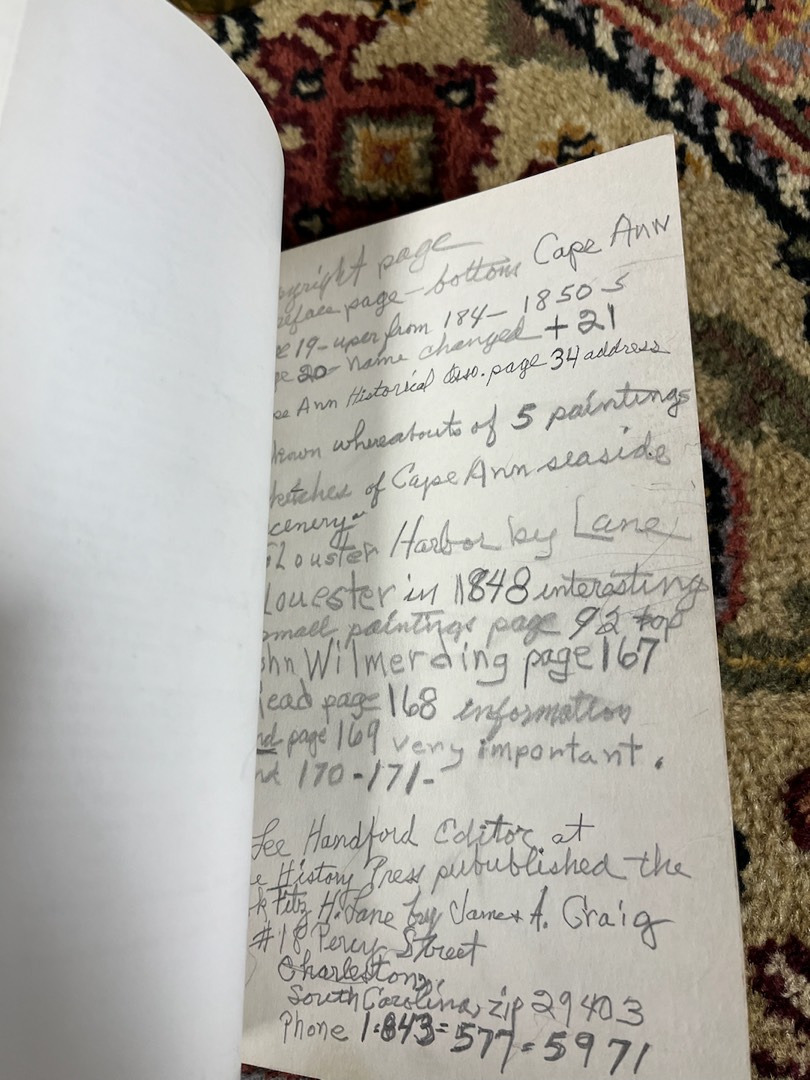 yright page
eface page - bottom Cape Ann
e 19 - uper from 184 - 1850 s
e 20 - name changed + 21
pe Ann Historical Asso. page 34 address
known whereabouts of 5 paintings
ketches of Cape Ann seaside
cenery"
Glouster Harbor by Lane
Louester in 1848 interesting
small paintings page 92 top
ohn Wilmerding page 167
read page 168 information
nd page 169 very important.
nd 170 - 171 -
Lee Handford Editor at
e History Press pubublished the
k Fitz H. Lane by James A. Craig
#18 Percy Street
Charleston,
South Carolina, zip 29403
Phone 1-843=577=5971